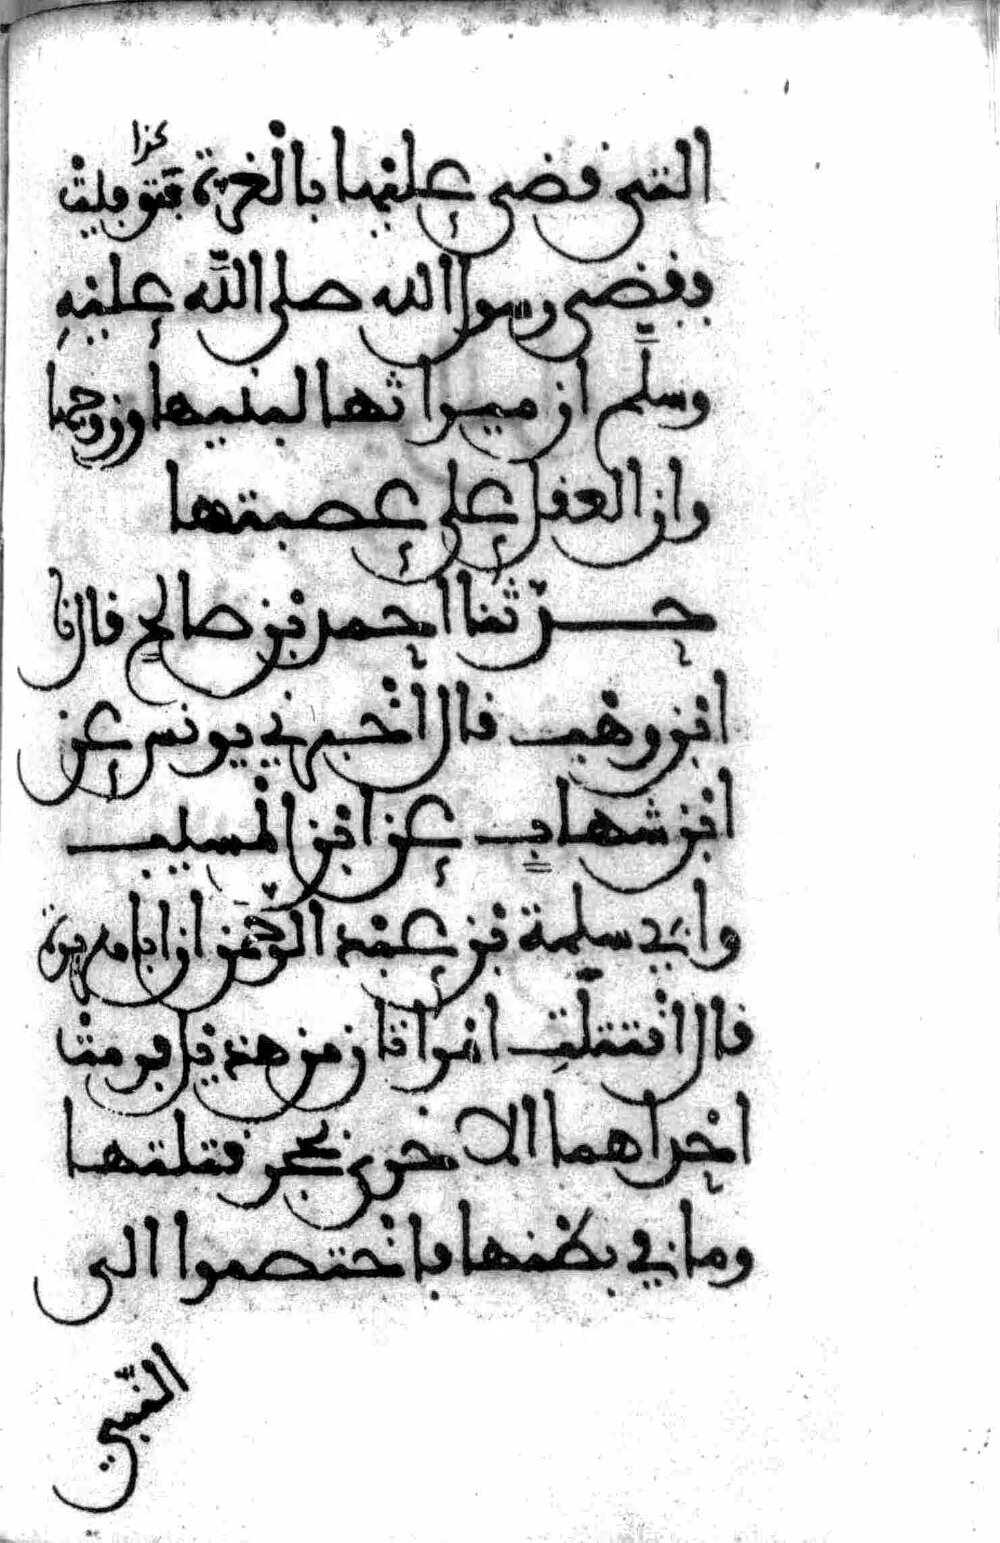 كذا
التي قضى عليها بالغرة فتوفيت
فقضى رسول الله صلى الله عليه
وسلم ان ميراثها لبنيها وزوجها
وان العقل على عصبتها
حدثنا احمد بن صالح قال نا
ابن وهب قال اخبرني يونس عن
ابن شهاب عن ابن المسيب
وابي سلمة بن عبد الرحمن ان ابا هريرة
قال اقتتلت امراتان من هذيل فرمت
احداهما الاخرى بحجر فقتلتها
وما في بطنها فاختصموا الى
النبي